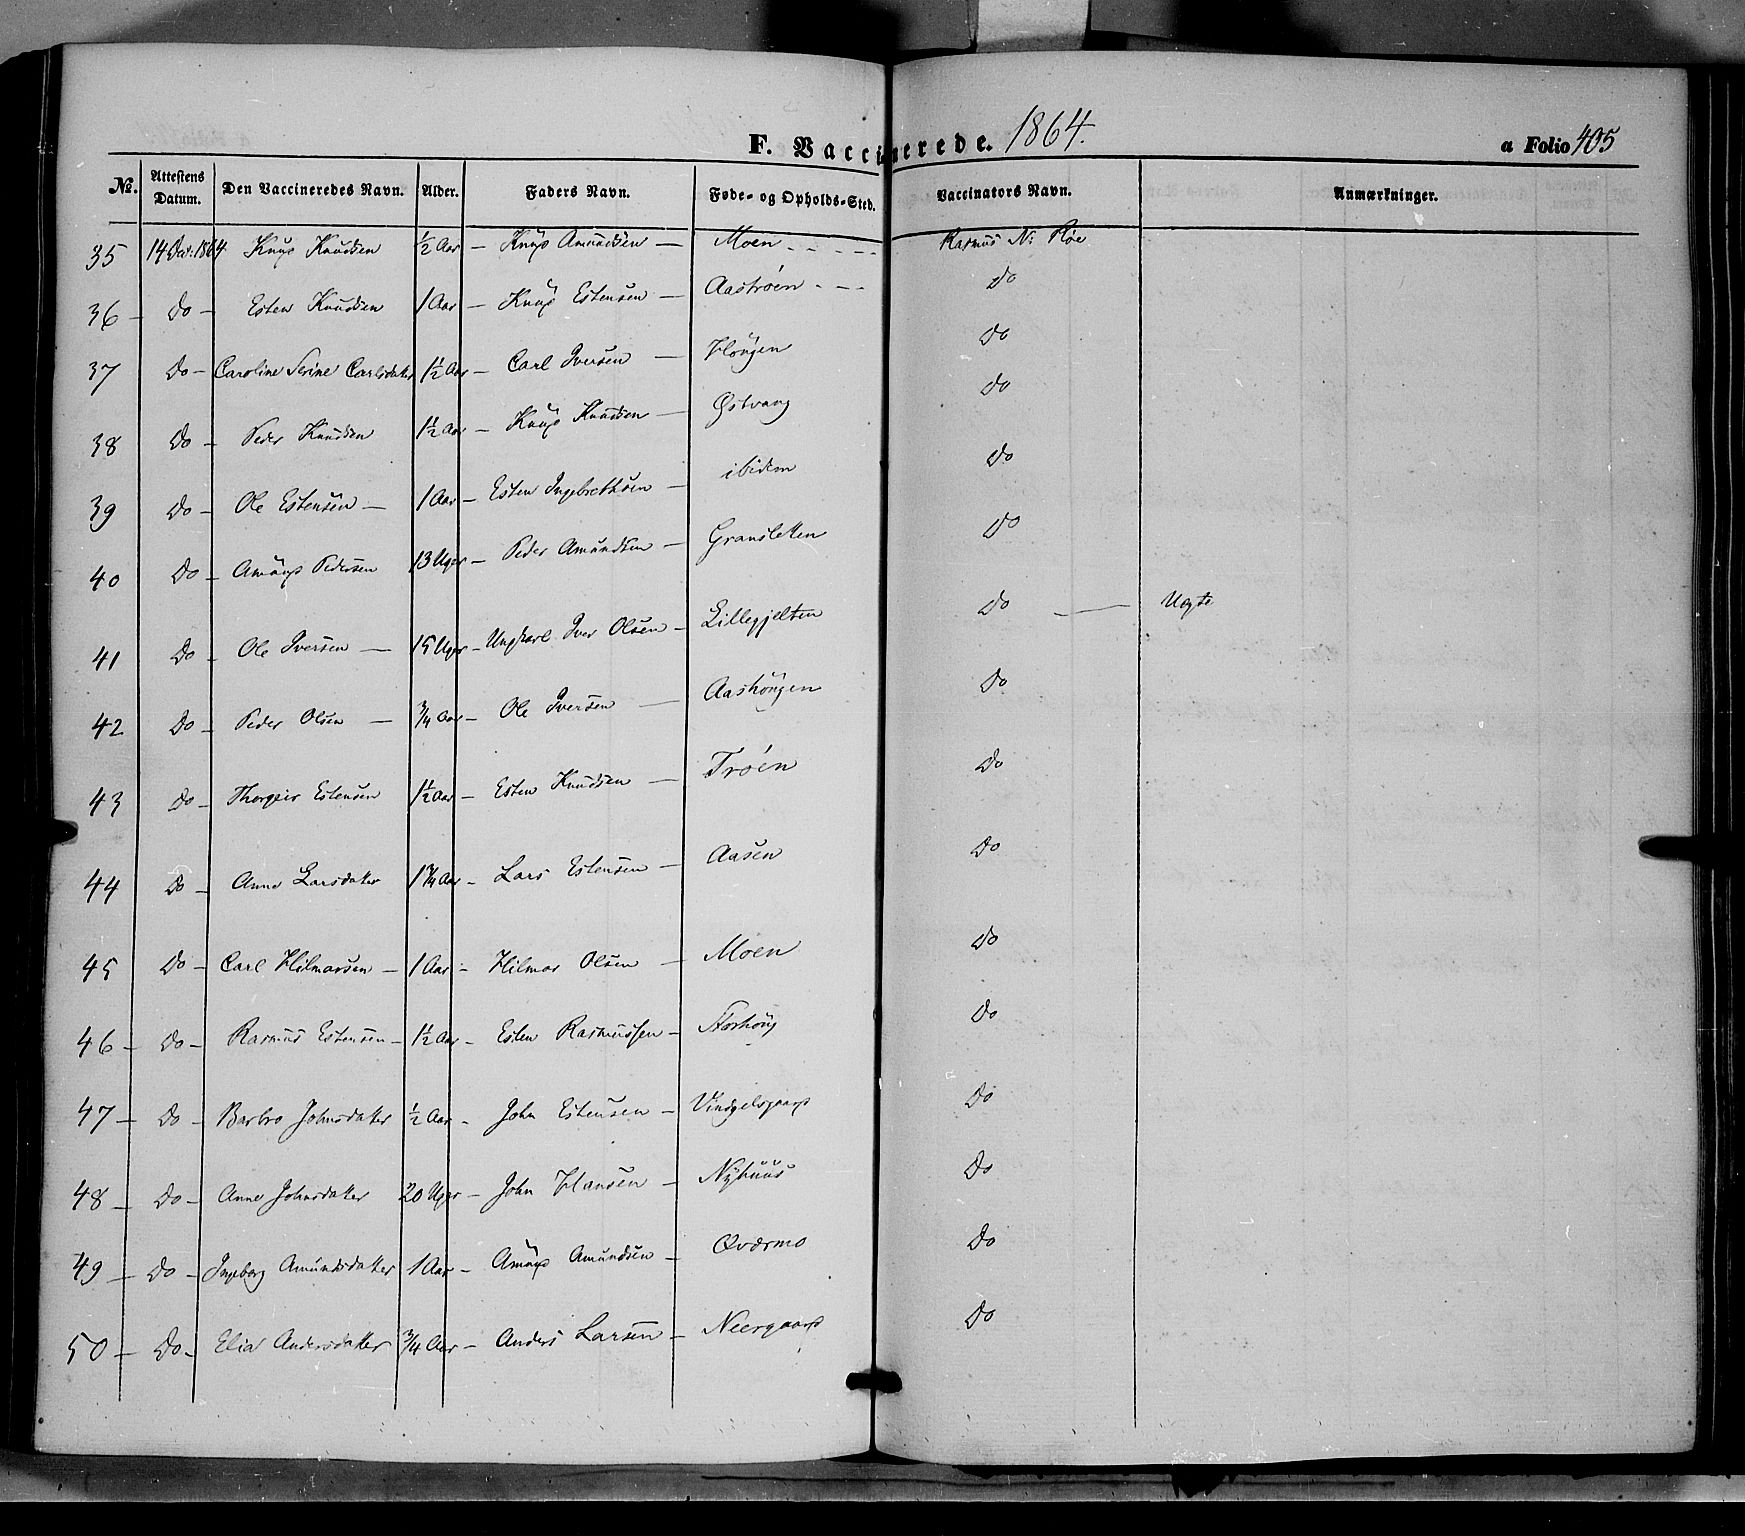 F. Vaccinerede. 1864.
a Folio 405
No. Attestens Datum. Den Vaccineredes Navn. Alder. Faders Navn. Føde- og Opholds-Sted. Vaccinators Navn. Anmærkninger.
35 14 Dec: 1864. Knud Knudsen ½ Aar — Knud Amundsen — Moen - - - - Rasmus N: Høe
36 — Do — Esten Knudsen 1 Aar — Knud Estensen — Aastrøen - - - Do
37 Do — Caroline Serine Carlsdatter 1½ Aar — Carl Iversen — Hougen Do
38 Do — Peder Knudsen 1½ Aar — Knud Knudsen — Østvang Do
39 Do — Ole Estensen — 1 Aar — Esten Ingebrethsen — ibidem Do
40 Do — Amund Pedersen 13 Uger — Peder Amundsen — Gransletten Do
41 Do — Ole Iversen — 15 Uger — Ungkarl Iver Olsen — Lillegjelten Do — Uægte
42 Do — Peder Olsen — ¾ Aar — Ole Iversen — Aashougen Do
43 Do — Thorgeir Estensen 1½ Aar — Esten Knudsen — Trøen Do
44 Do — Anne Larsdatter 1¾ Aar — Lars Estensen — Aasen Do
45 Do — Carl Hilmarsen — 1 Aar — Hilmar Olsen — Moen Do
46 — Do — Rasmus Estensen — 1½ Aar — Esten Rasmussen — Storhoug Do
47 — Do — Barbro Johnsdatter ½ Aar — John Estensen — Vindgelsgaard Do
48 — Do — Anne Johnsdatter 20 Uger — John Hansen — Nyhuus Do
49 — Do — Ingeborg Amundsdatter 1 Aar — Amund Amundsen — Qværmo Do
50 — Do — Elia Andersdatter ¾ Aar — Anders Larsen — Neergaard Do